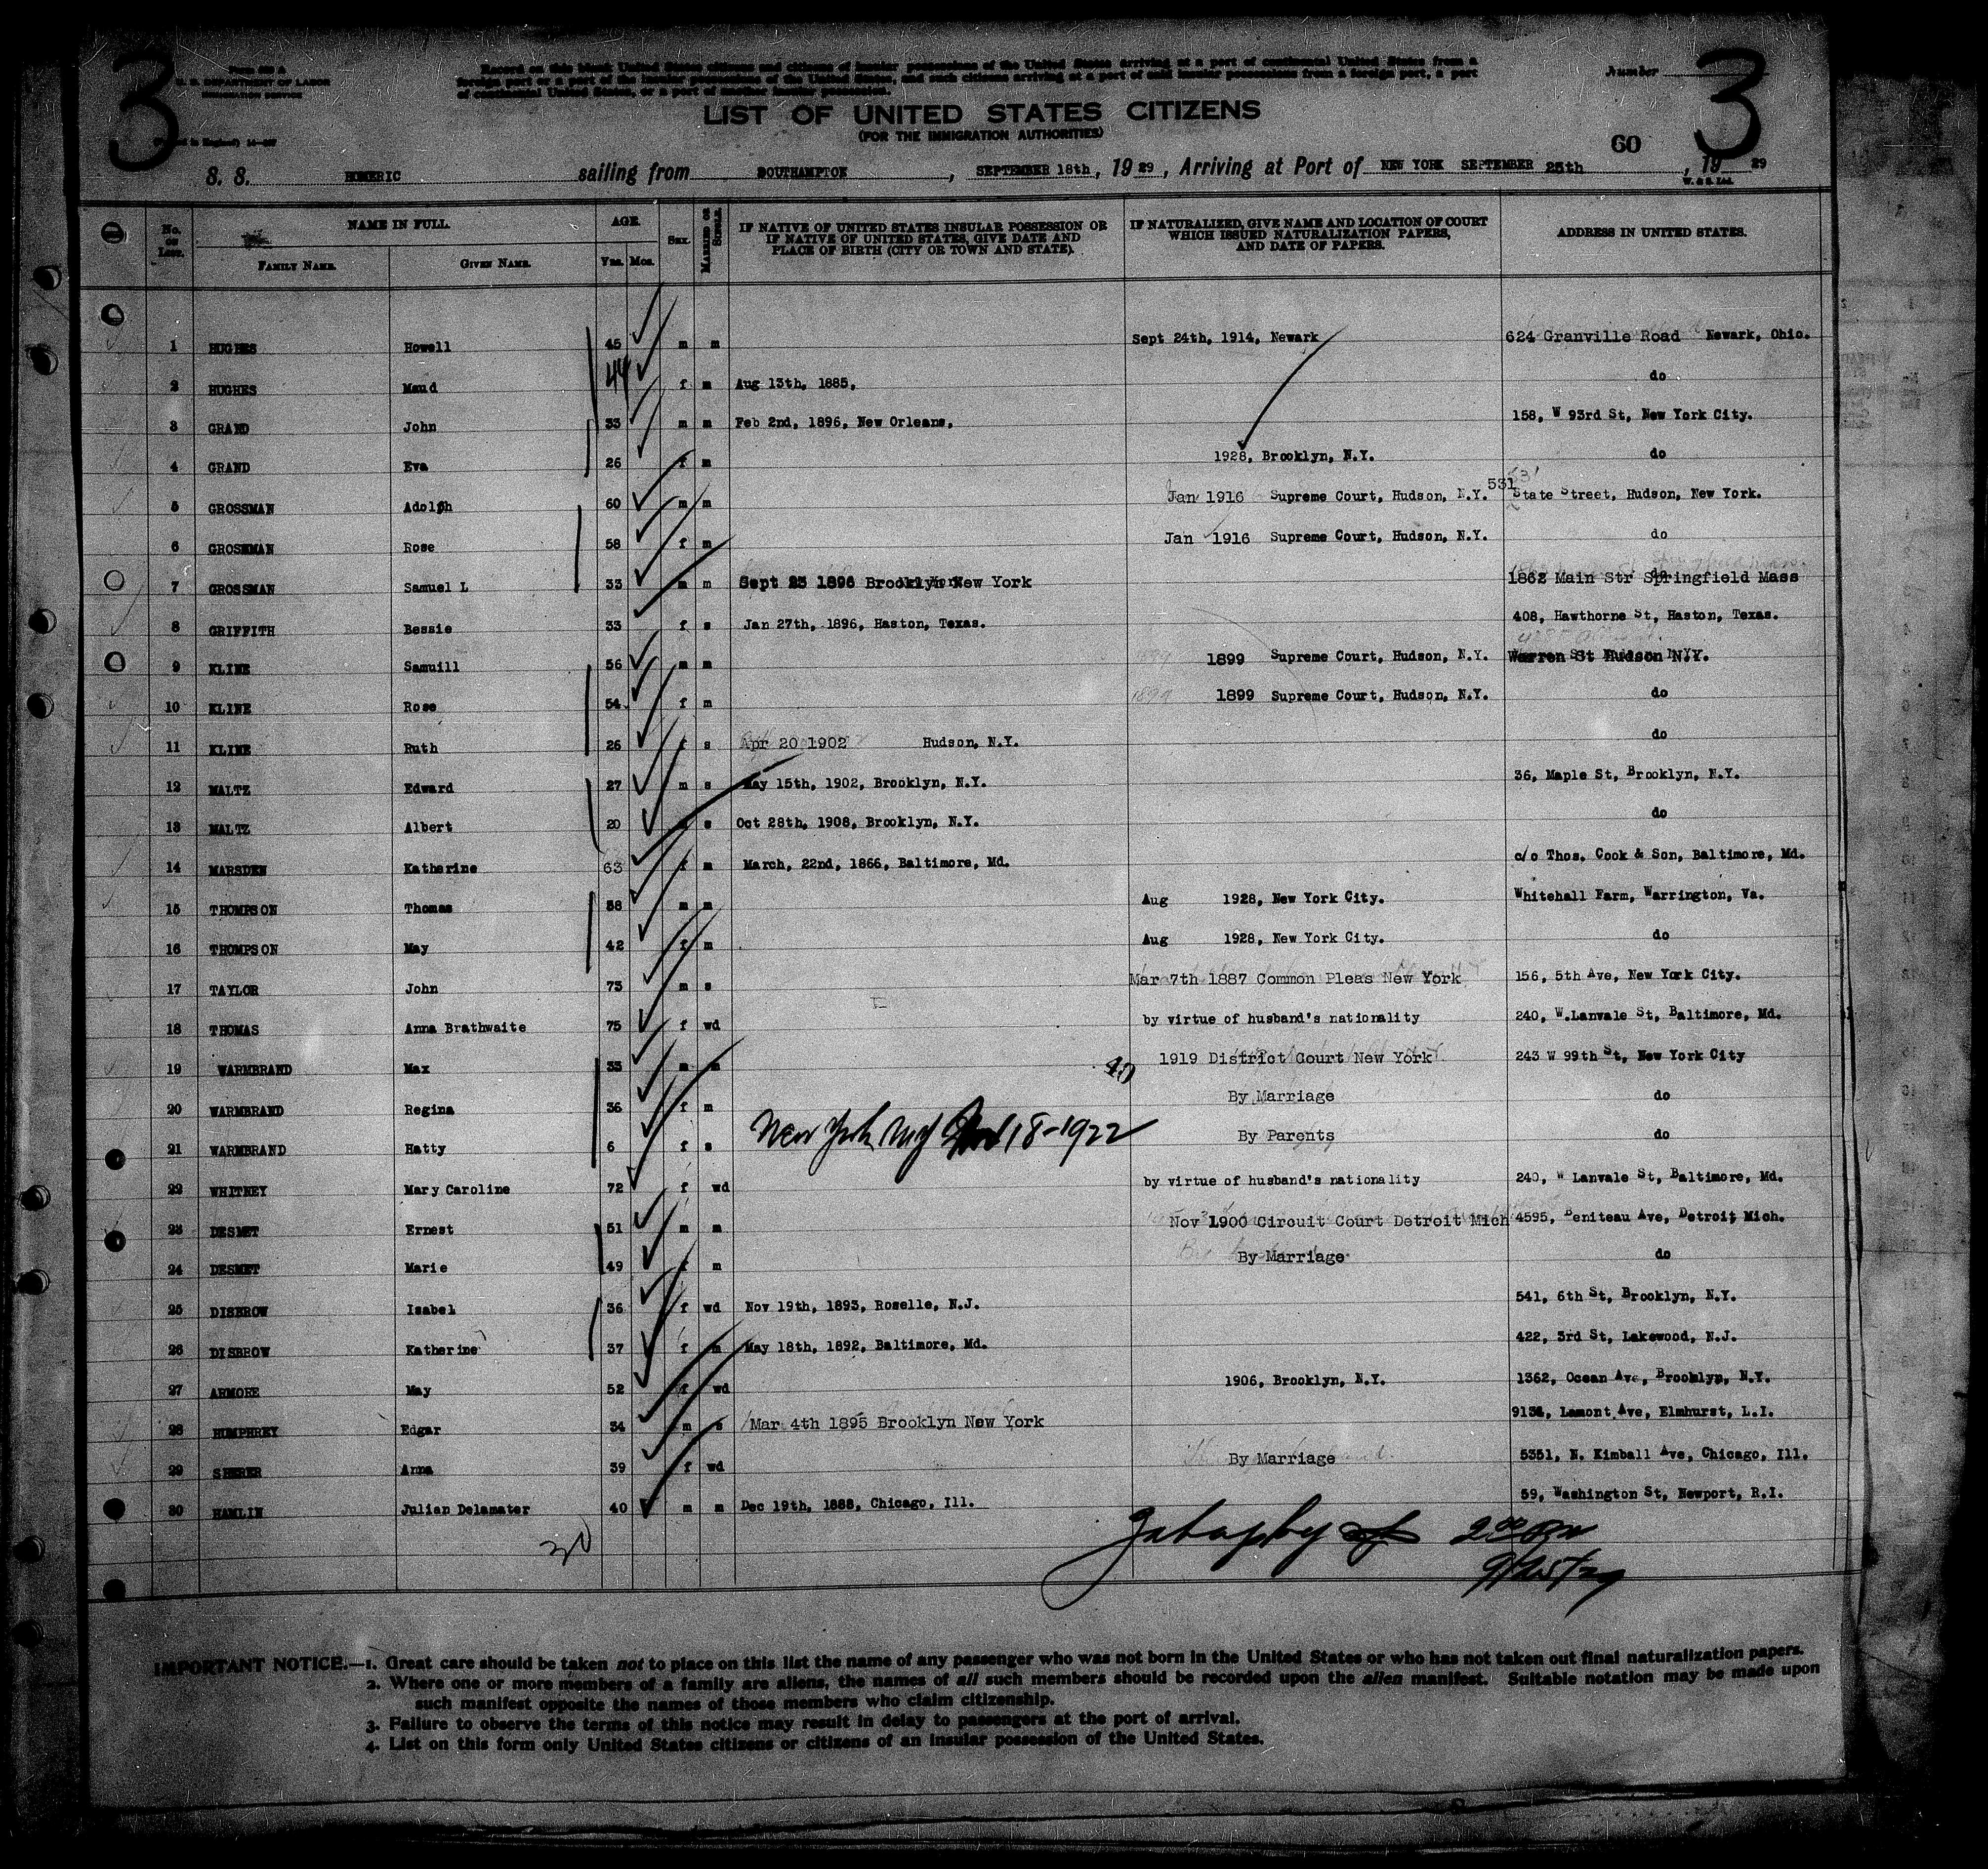 3
3
U. S. DEPARTMENT OF LABOR
IMMIGRATION SERVICE
Record on this blank United States citizens and citizens of insular possessions of the United States arriving at a port of continental United States from a
foreign port or a port of the insular possessions of the United States, and such citizens arriving at a port of said insular possessions from a foreign port, a port
of continental United States, or a port of another insular possession.
Number
LIST OF UNITED STATES CITIZENS
(FOR THE IMMIGRATION AUTHORITIES)
60
S. S. HOMERIC sailing from SOUTHAMPTON, SEPTEMBER 18th, 19 29, Arriving at Port of NEW YORK SEPTEMBER 25th, 19 29
W. & S. Ltd.
No. on List. NAME IN FULL. AGE. Sex. MARRIED OR SINGLE. IF NATIVE OF UNITED STATES INSULAR POSSESSION OR IF NATIVE OF UNITED STATES, GIVE DATE AND PLACE OF BIRTH (CITY OR TOWN AND STATE). IF NATURALIZED, GIVE NAME AND LOCATION OF COURT WHICH ISSUED NATURALIZATION PAPERS, AND DATE OF PAPERS. ADDRESS IN UNITED STATES.
FAMILY NAME. GIVEN NAME. Yrs. Mos.
1 HUGHES Howell 45 m m Sept 24th, 1914, Newark 624 Granville Road Newark, Ohio.
2 HUGHES Maud 44 f m Aug 13th, 1885, do
3 GRAND John 33 m m Feb 2nd, 1896, New Orleans, 158, W 93rd St, New York City.
4 GRAND Eva 26 f m 1928, Brooklyn, N.Y. do
5 GROSSMAN Adolph 60 m m Jan 1916 Supreme Court, Hudson, N.Y. 531 State Street, Hudson, New York.
6 GROSSMAN Rose 58 f m Jan 1916 Supreme Court, Hudson, N.Y. do
7 GROSSMAN Samuel L 33 m m Sept 25 1896 Brooklyn New York 1862 Main Str Springfield Mass
8 GRIFFITH Bessie 33 f s Jan 27th, 1896, Haston, Texas. 408, Hawthorne St, Haston, Texas.
9 KLINE Samuill 56 m m 1899 Supreme Court, Hudson, N.Y. Warren St Hudson N.Y.
10 KLINE Rose 54 f m 1899 1899 Supreme Court, Hudson, N.Y. do
11 KLINE Ruth 26 f s Apr 20 1902 Hudson, N.Y. do
12 MALTZ Edward 27 m s May 15th, 1902, Brooklyn, N.Y. 36, Maple St, Brooklyn, N.Y.
13 MALTZ Albert 20 s Oct 28th, 1908, Brooklyn, N.Y. do
14 MARSDEN Katherine 63 f m March, 22nd, 1866, Baltimore, Md. c/o Thos. Cook & Son, Baltimore, Md.
15 THOMPSON Thomas 58 m m Aug 1928, New York City. Whitehall Farm, Warrington, Va.
16 THOMPSON May 42 f m Aug 1928, New York City. do
17 TAYLOR John 73 m s Mar 7th 1887 Common Pleas New York 156, 5th Ave, New York City.
18 THOMAS Anna Brathwaite 75 f wd by virtue of husband's nationality 240, W.Lanvale St, Baltimore, Md.
19 WARMBRAND Max 35 m m 40 1919 District Court New York 243 W 99th St, New York City
20 WARMBRAND Regina 36 f m By Marriage do
21 WARMBRAND Hatty 6 f s New York 18-1922 By Parents do
22 WHITNEY Mary Caroline 72 f wd by virtue of husband's nationality 240, W Lanvale St, Baltimore, Md.
23 DESMET Ernest 51 m m Nov 1900 Circuit Court Detroit Mich 4595, Beniteau Ave, Detroit Mich.
24 DESMET Marie 49 f m By Marriage do
25 DISBROW Isabel 36 f wd Nov 19th, 1893, Roselle, N.J. 541, 6th St, Brooklyn, N.Y.
26 DISBROW Katherine 37 f m May 18th, 1892, Baltimore, Md. 422, 3rd St, Lakewood, N.J.
27 ARMORE May 52 f wd 1906, Brooklyn, N.Y. 1362, Ocean Ave, Brooklyn, N.Y.
28 HUMPHREY Edgar 34 m s Mar 4th 1895 Brooklyn New York Lamont Ave, Elmhurst, L.I.
29 Anna 39 f wd By Marriage 5351, N. Kimball Ave, Chicago, Ill.
30 HAMLIN Julian Delamater 40 m m Dec 19th, 1888, Chicago, Ill. 59, Washington St, Newport, R.I.
30
IMPORTANT NOTICE.—1. Great care should be taken not to place on this list the name of any passenger who was not born in the United States or who has not taken out final naturalization papers.
2. Where one or more members of a family are aliens, the names of all such members should be recorded upon the alien manifest. Suitable notation may be made upon
such manifest opposite the names of those members who claim citizenship.
3. Failure to observe the terms of this notice may result in delay to passengers at the port of arrival.
4. List on this form only United States citizens or citizens of an insular possession of the United States.